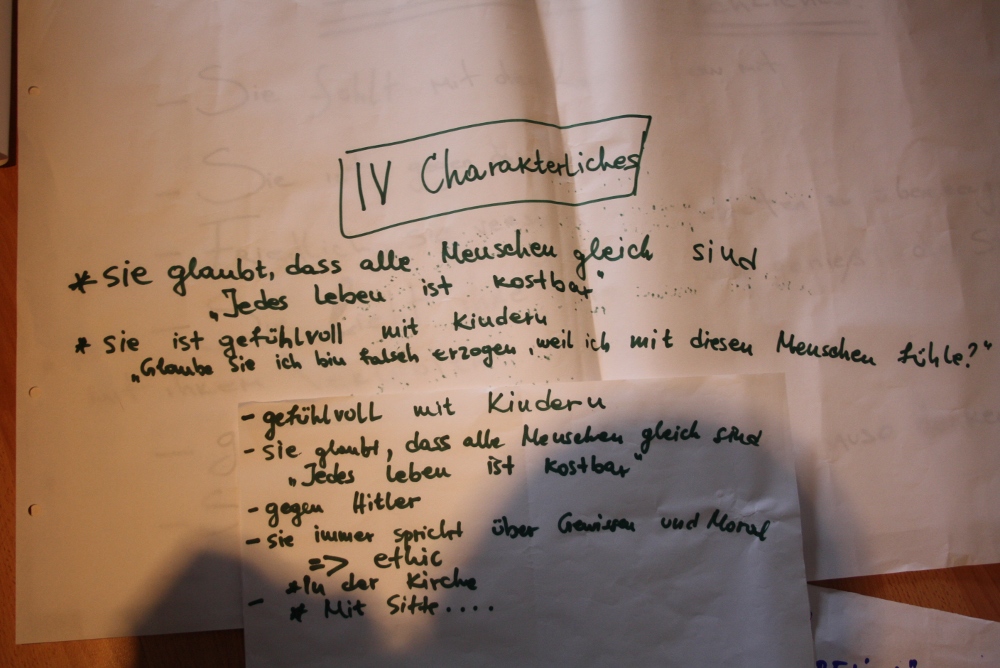 IV Charakterliches
* sie glaubt, dass alle Menschen gleich sind
„Jedes Leben ist kostbar"
* sie ist gefühlvoll mit Kindern
„Glaube Sie ich bin falsch erzogen, weil ich mit diesen Menschen fühle?"
- gefühlvoll mit Kindern
- sie glaubt, dass alle Menschen gleich sind
„Jedes Leben ist kostbar"
- gegen Hitler
- sie immer spricht über Gewissen und Moral
=> ethic
* In der Kirche
- * Mit Sitte....